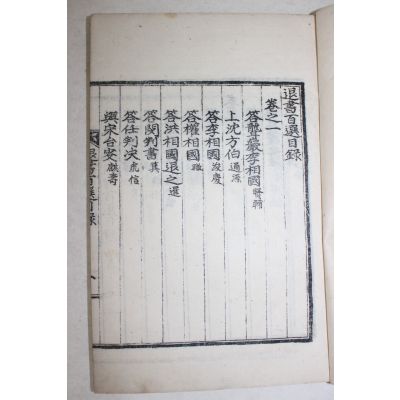 退書百選目錄
卷之一
答聾巖李相國賢輔
上沈方伯通源
答李相國浚慶
答權相國轍
答閔判書箕
答洪相國退之暹
答任判決虎臣
與宋台叟麒壽
退書百選目錄